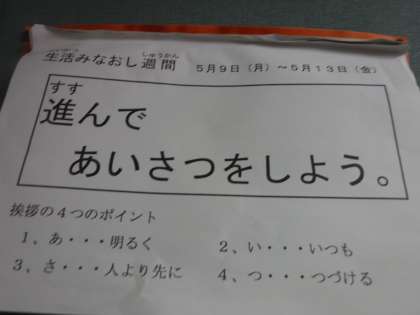 せいかつ しゅうかん
生活みなおし週間 5月9日(月)~5月13日(金)
すす
進んで
あいさつをしよう。
挨拶の4つのポイント
1、あ・・・明るく 2、い・・・いつも
3、さ・・・人より先に 4、つ・・・つづける